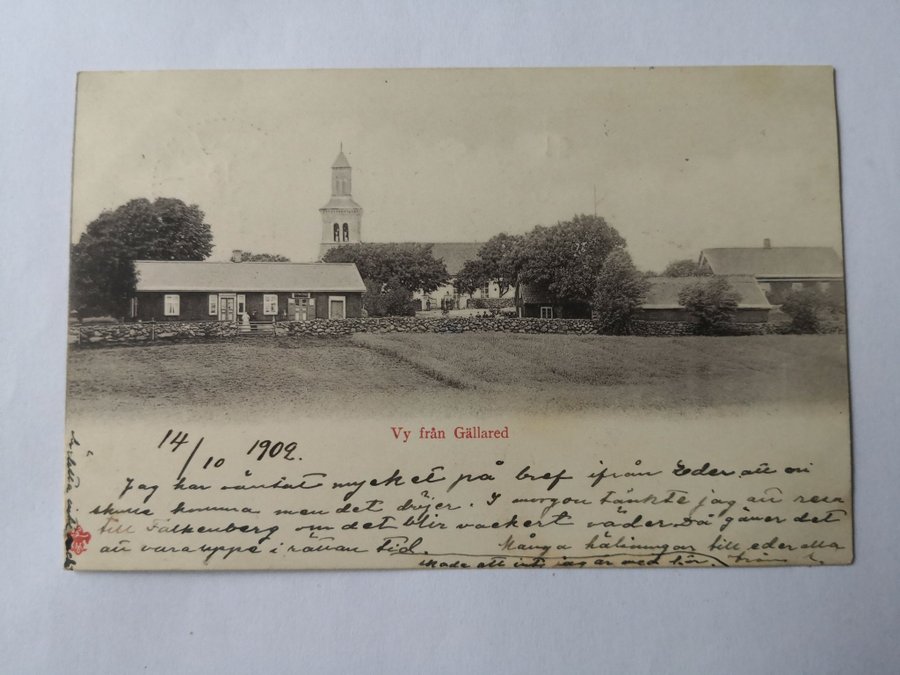 Vy från Gällared
14/10 1902.
Jag har väntat mycket på bref ifrån Eder att ni
skulle komma men det dröjer. I morgon tänkte jag att resa
till Falkenberg om det blir vackert väder. Då gäller det
att vara uppe i rättan Tid. Många hälsningar till eder alla
skade att inte jag är med här. från